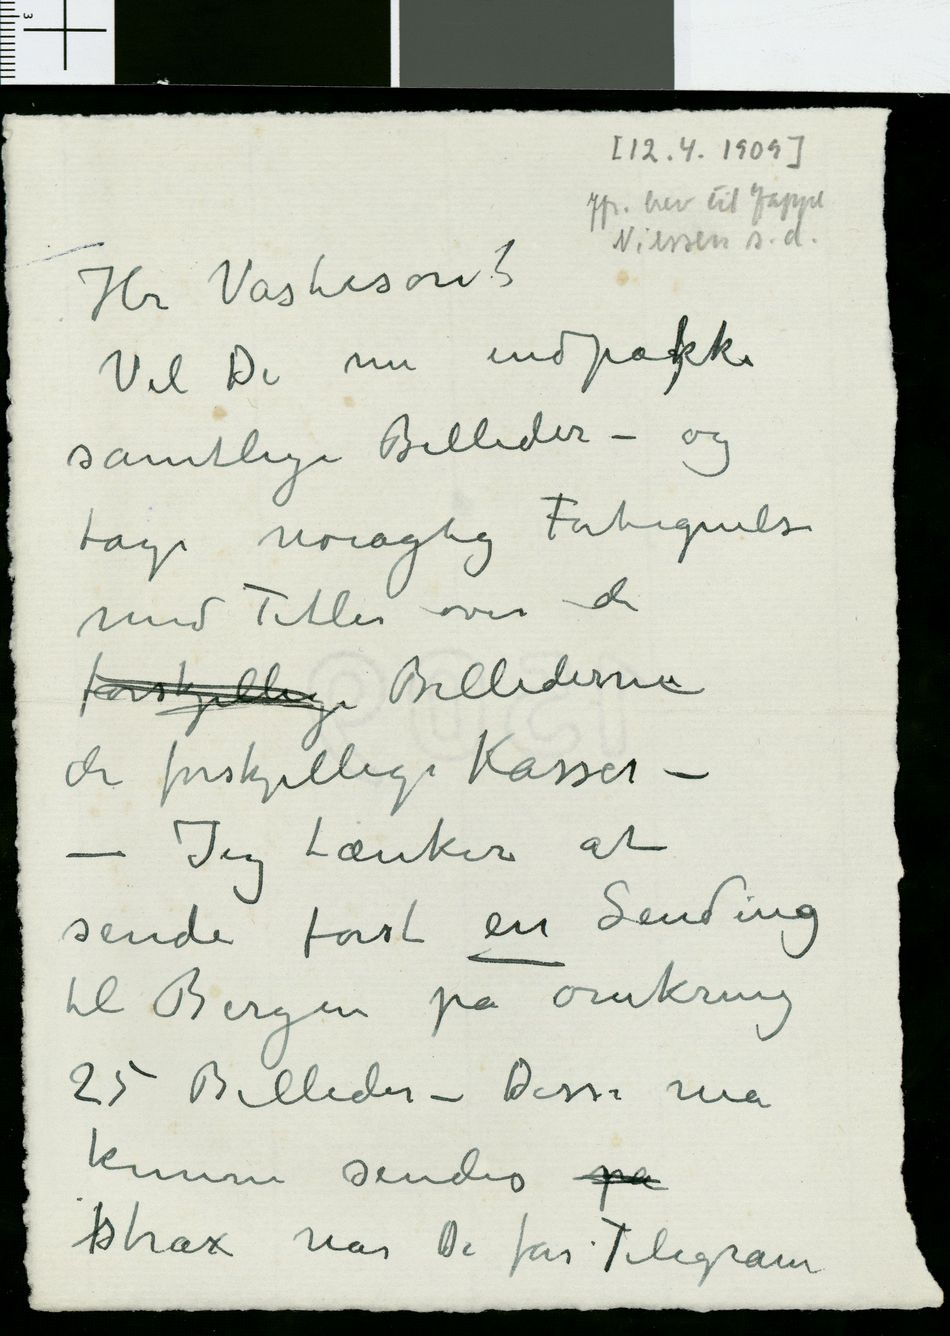 [12.4.1909]
Jfr. brev til Jappe
Nilssen s.d.
Hr
Vil De nu indpakke
samtlige Billeder – og
tage nøiagtig Fortegnelse
med Titler over de
forskjellige Billederne
de forskjellige Kasser –
— Jeg tænker at
sende først en Sending
til Bergen på omkring
25 Billeder – Disse må
kunne sendes på
strax når De får Telegram